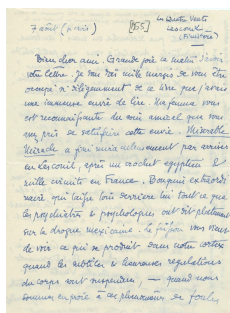 7 août (paris) [55] Les Quatre Vents
Lesconil
(Finistère)
Bien cher ami. Grande joie ce matin d'avoir
votre lettre. Je vous dis mille mercis de vous être
occupé si diligemment de ce livre que j'avais
une immense envie de lire. Ma femme vous
est reconnaissante du soin amical que vous
avez pris de satisfaire cette envie. Misérable
Miracle a fini miraculeusement par arriver
en Lesconil, après un crochet egyptien &
mille circuits en France. Bouquin extraordi
naire qui laisse loin derrière lui tout ce que
les psychiatres & psychologues ont dit platement
sur la drogue mexicaine. Le frisson vous vient
de voir ce qui se produit dans notre cortex
quand les subtiles & heureuses regulations
du corps sont suspendues, — quand nous
sommes en proie à ces phénomènes de foules